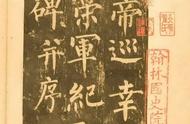 帝巡幸
崇軍紀
碑并序
翰林國史院